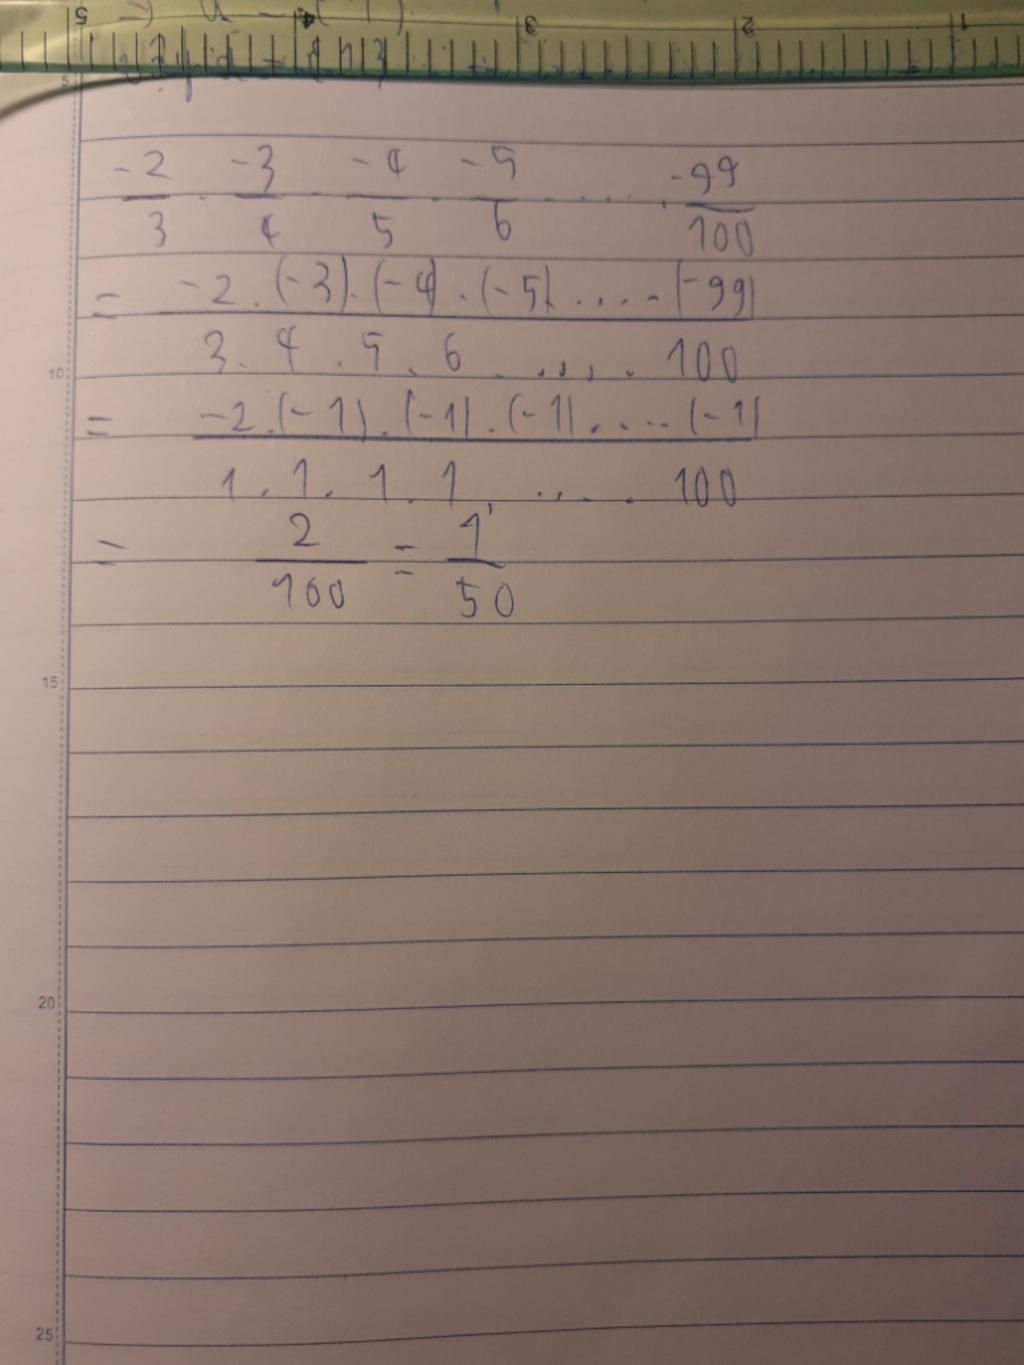 5 4 3 2 1
5
-2/3 . -3/4 . -4/5 . -5/6 . .... . -99/100
= -2 . (-3) . (-4) . (-5) . .... (-99) / 3 . 4 . 5 . 6 . .... . 100
10
= -2 . (-1) . (-1) . (-1) . .... (-1) / 1 . 1 . 1 . 1 . .... . 100
= 2/100 = 1/50
15
20
25